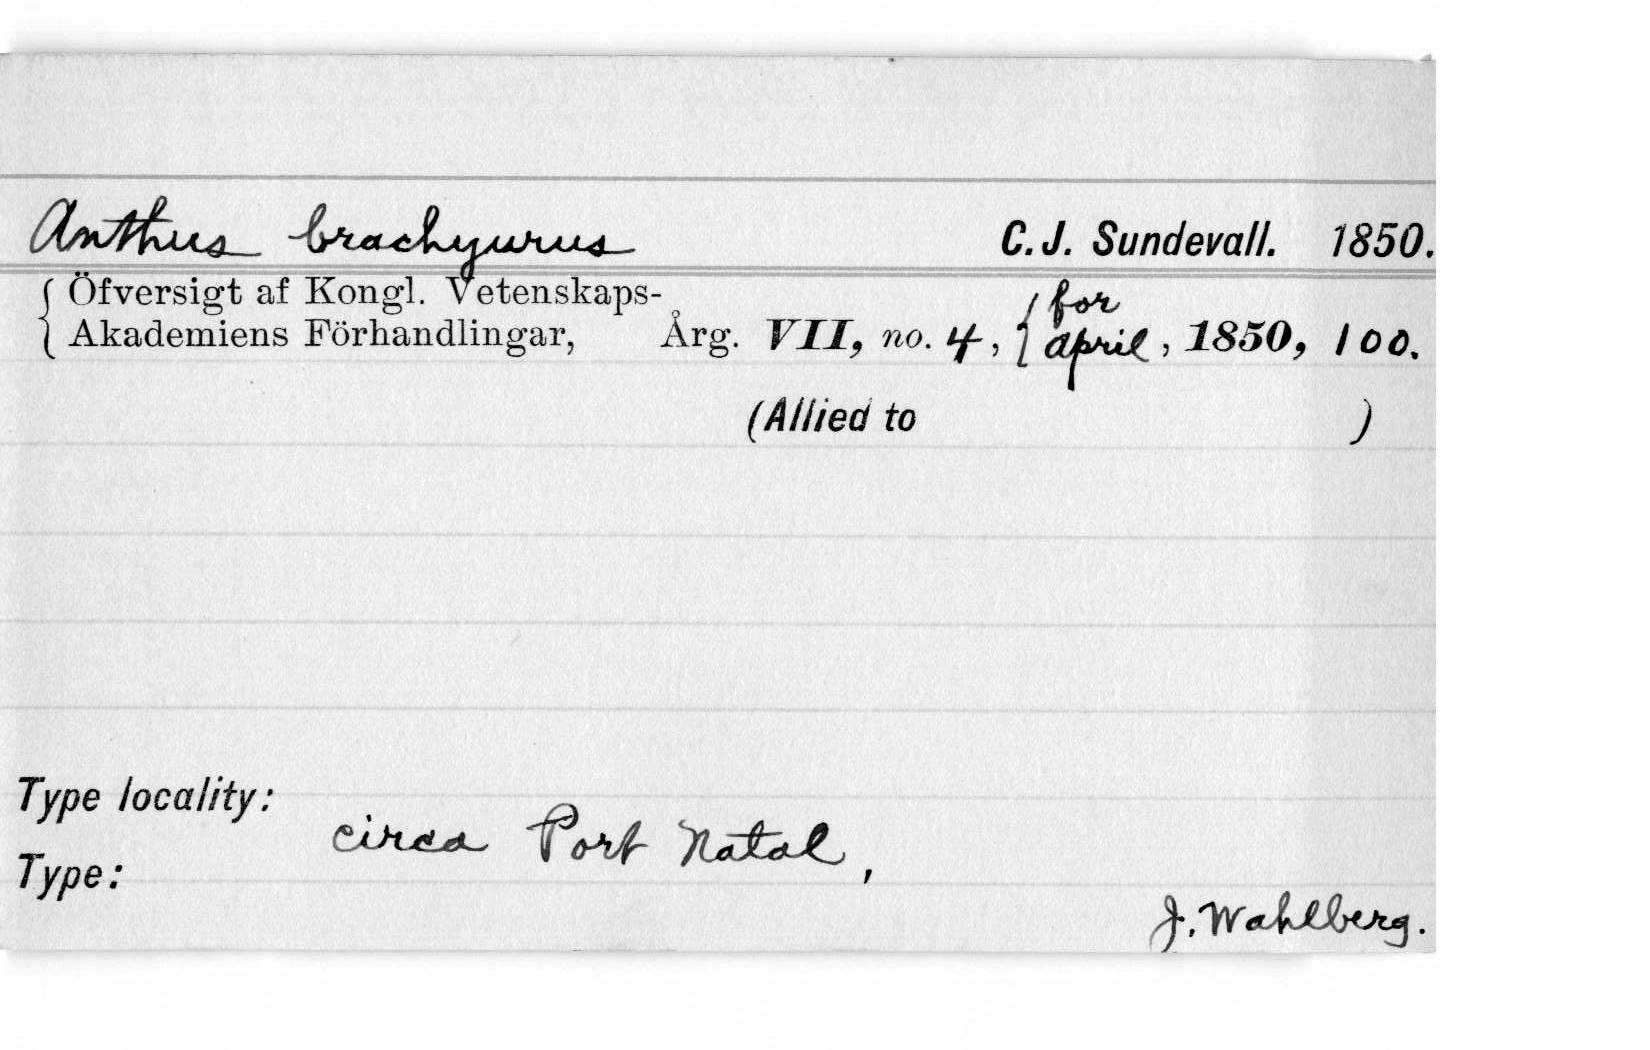 Anthus brachyurus C. J. Sundevall. 1850.
{ Öfversigt af Kongl. Vetenskaps-
Akademiens Förhandlingar, Årg. VII, no. 4, { for april, 1850, 100.
(Allied to )
Type locality:
circa Port Natal,
Type:
J. Wahlberg.